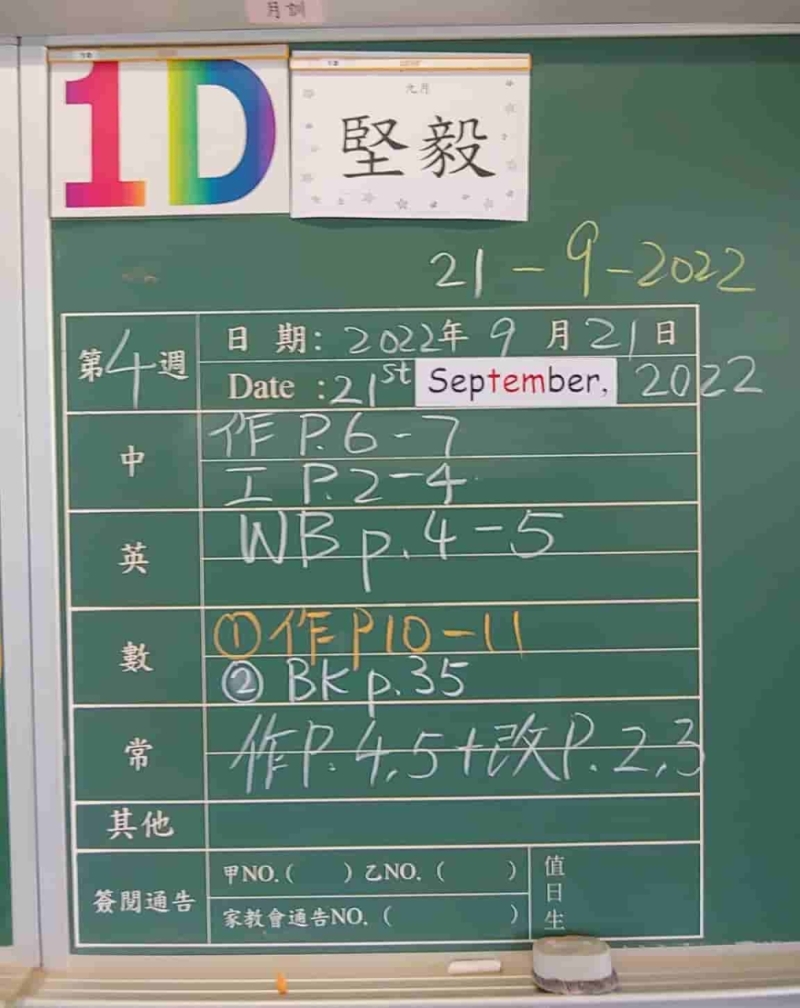 月訓
1D
九月
堅毅
21-9-2022
第4週
日期: 2022年9月21日
Date :21st September, 2022
中
作 P.6-7
工 P.2-4
英
WB p.4-5
數
①作P10-11
② BK p.35
常
作P.4,5+改P.2,3
其他
簽閱通告
甲NO.( )乙NO.( )
家教會通告NO.( )
值日生